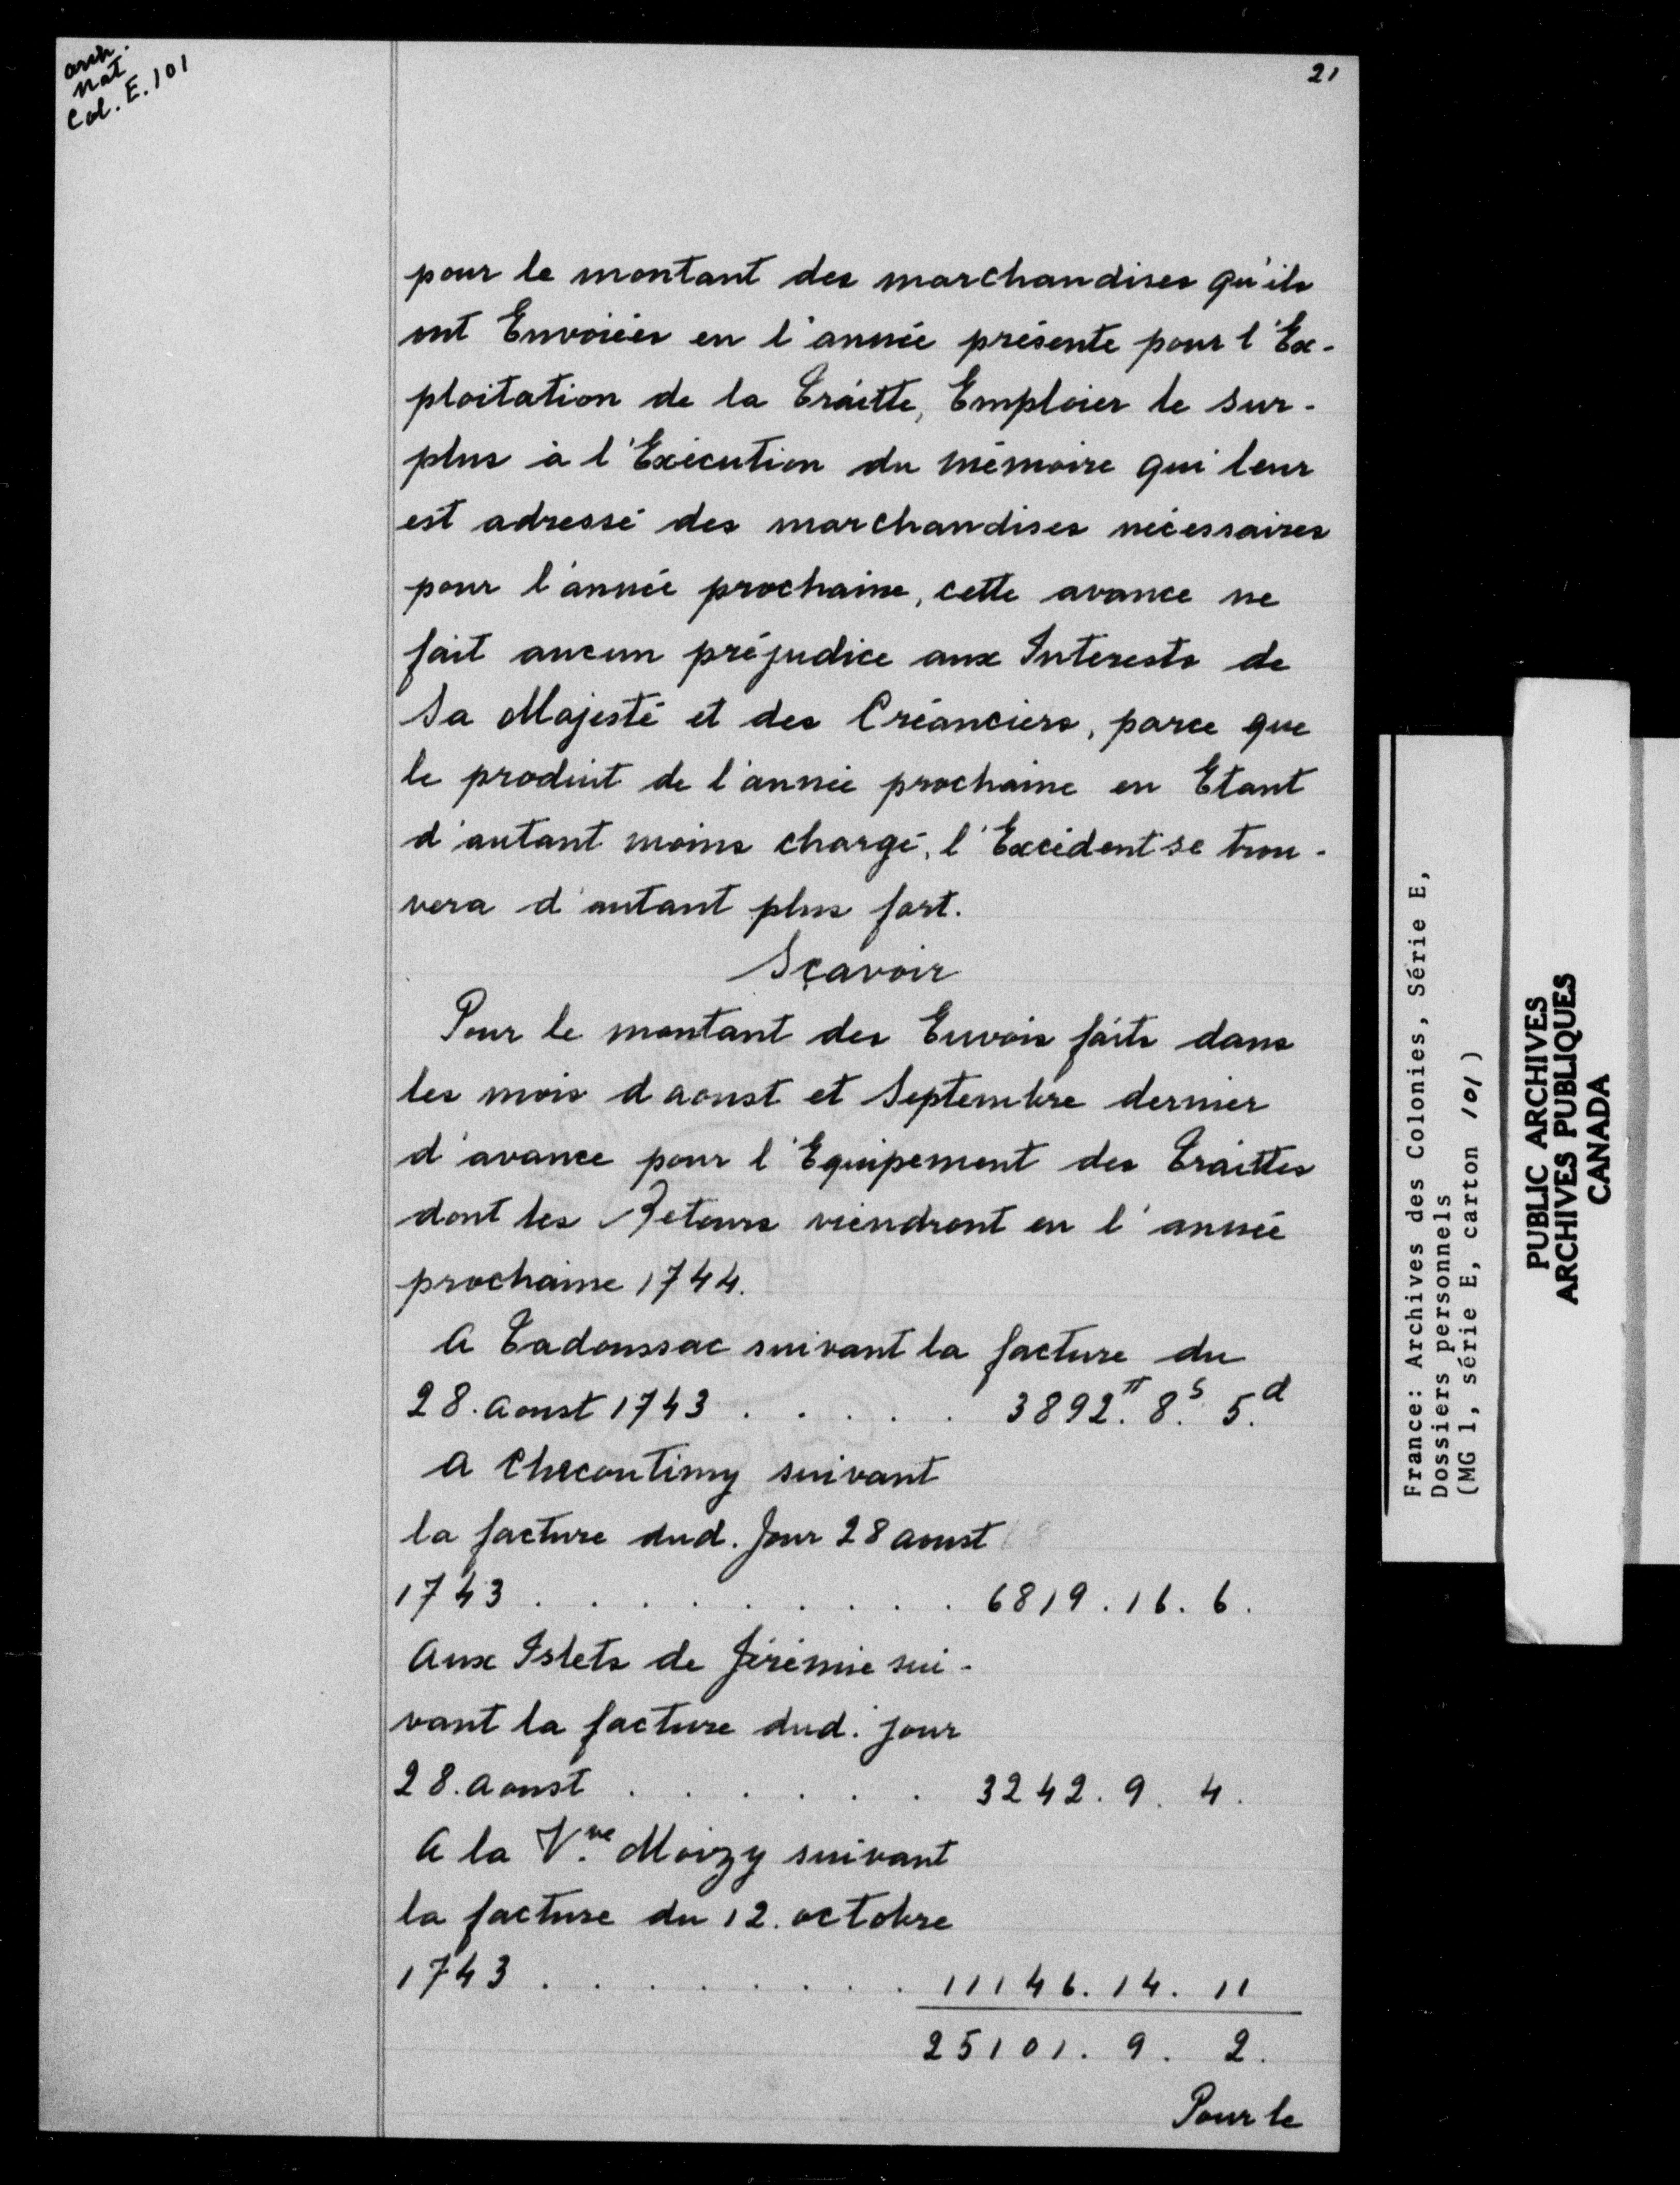 arch.
nat
Col. E. 101
21
pour le montant des marchandises qu'ils
ont Envoiées en l'année présente pour l'Ex-
ploitation de la Traitte, Emploier le sur-
plus à l'Exécution du mémoire qui leur
est adressé des marchandises nécessaires
pour l'année prochaine, cette avance ne
fait aucun préjudice aux Interests de
Sa Majesté et des Créanciers, parce que
le produit de l'année prochaine en Etant
d'autant moins chargé, l'Excédent se trou-
vera d'autant plus fort.
Sçavoir
Pour le montant des Envois faits dans
les mois d'aoust et Septembre dernier
d'avance pour l'Equipement des Traittes
dont les Retours viendront en l'année
prochaine 1744.
A Tadoussac suivant la facture du
28. aoust 1743 . . . . . 3892.tt 8.s 5.d
A Checoutimy suivant
la facture dud. Jour 28 aoust
1743 . . . . . . . . . 6819. 16. 6.
Aux Islets de Jérémie sui-
vant la facture dud. jour
28. aoust . . . . . . 3242. 9. 4.
A la V.ve Moizy suivant
la facture du 12. octobre
1743 . . . . . . . 11146. 14. 11
25101. 9. 2.
Pour le
France: Archives des Colonies, Série E,
Dossiers personnels
(MG 1, série E, carton 101)
PUBLIC ARCHIVES
ARCHIVES PUBLIQUES
CANADA